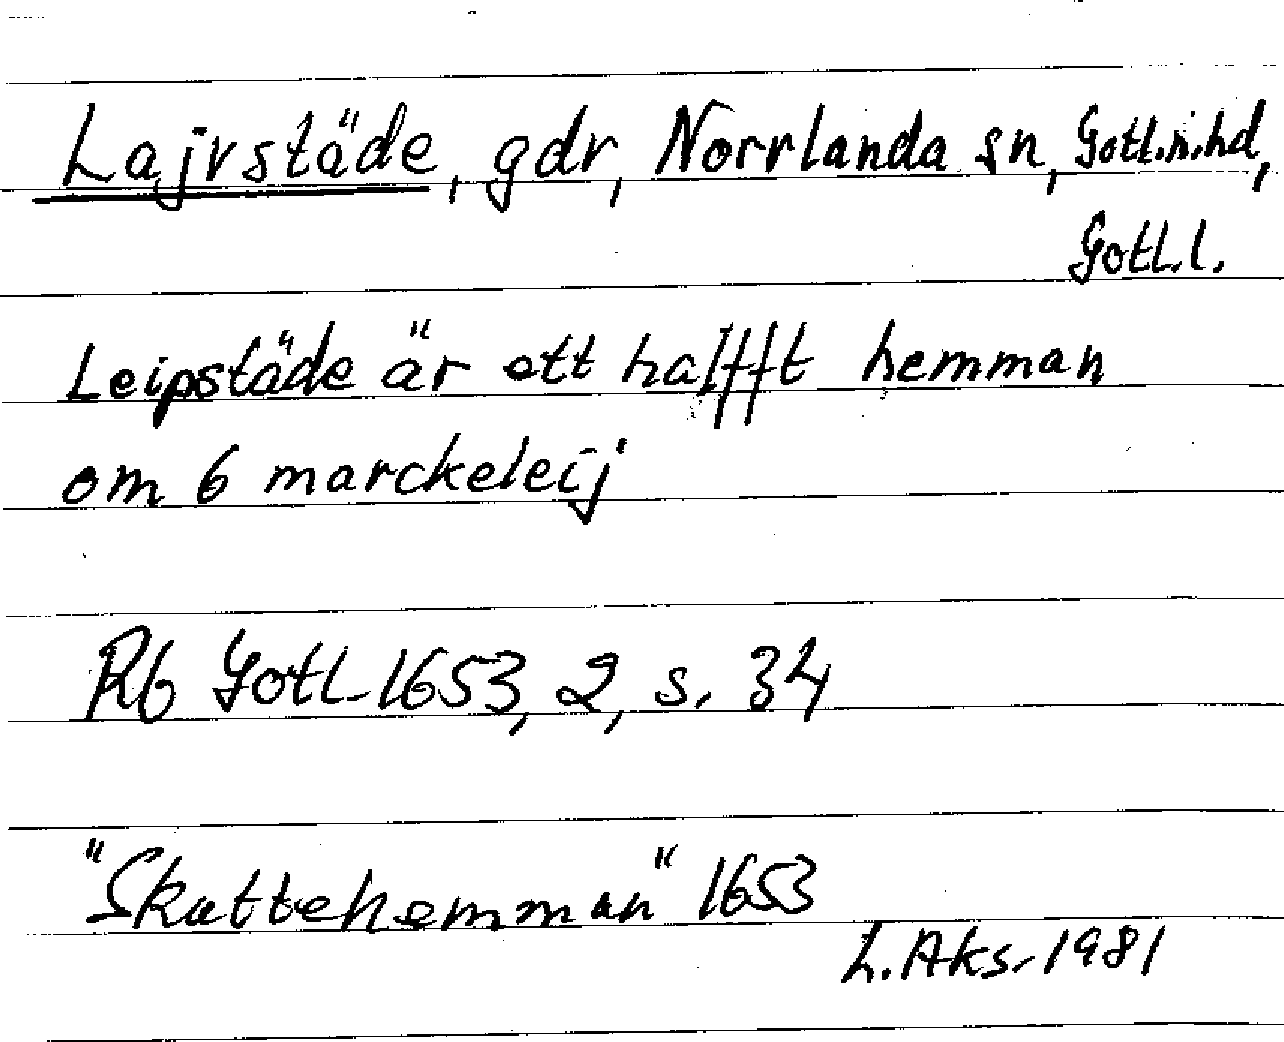 Lajvstäde, gdr, Norrlanda sn, Gotl.n.hd,
Gotl.l.
Leipstäde är ett halfft hemman
om 6 marckeleij
Rb Gotl 1653, 2, s. 34
"Skattehemman" 1653
L. Aks. 1981